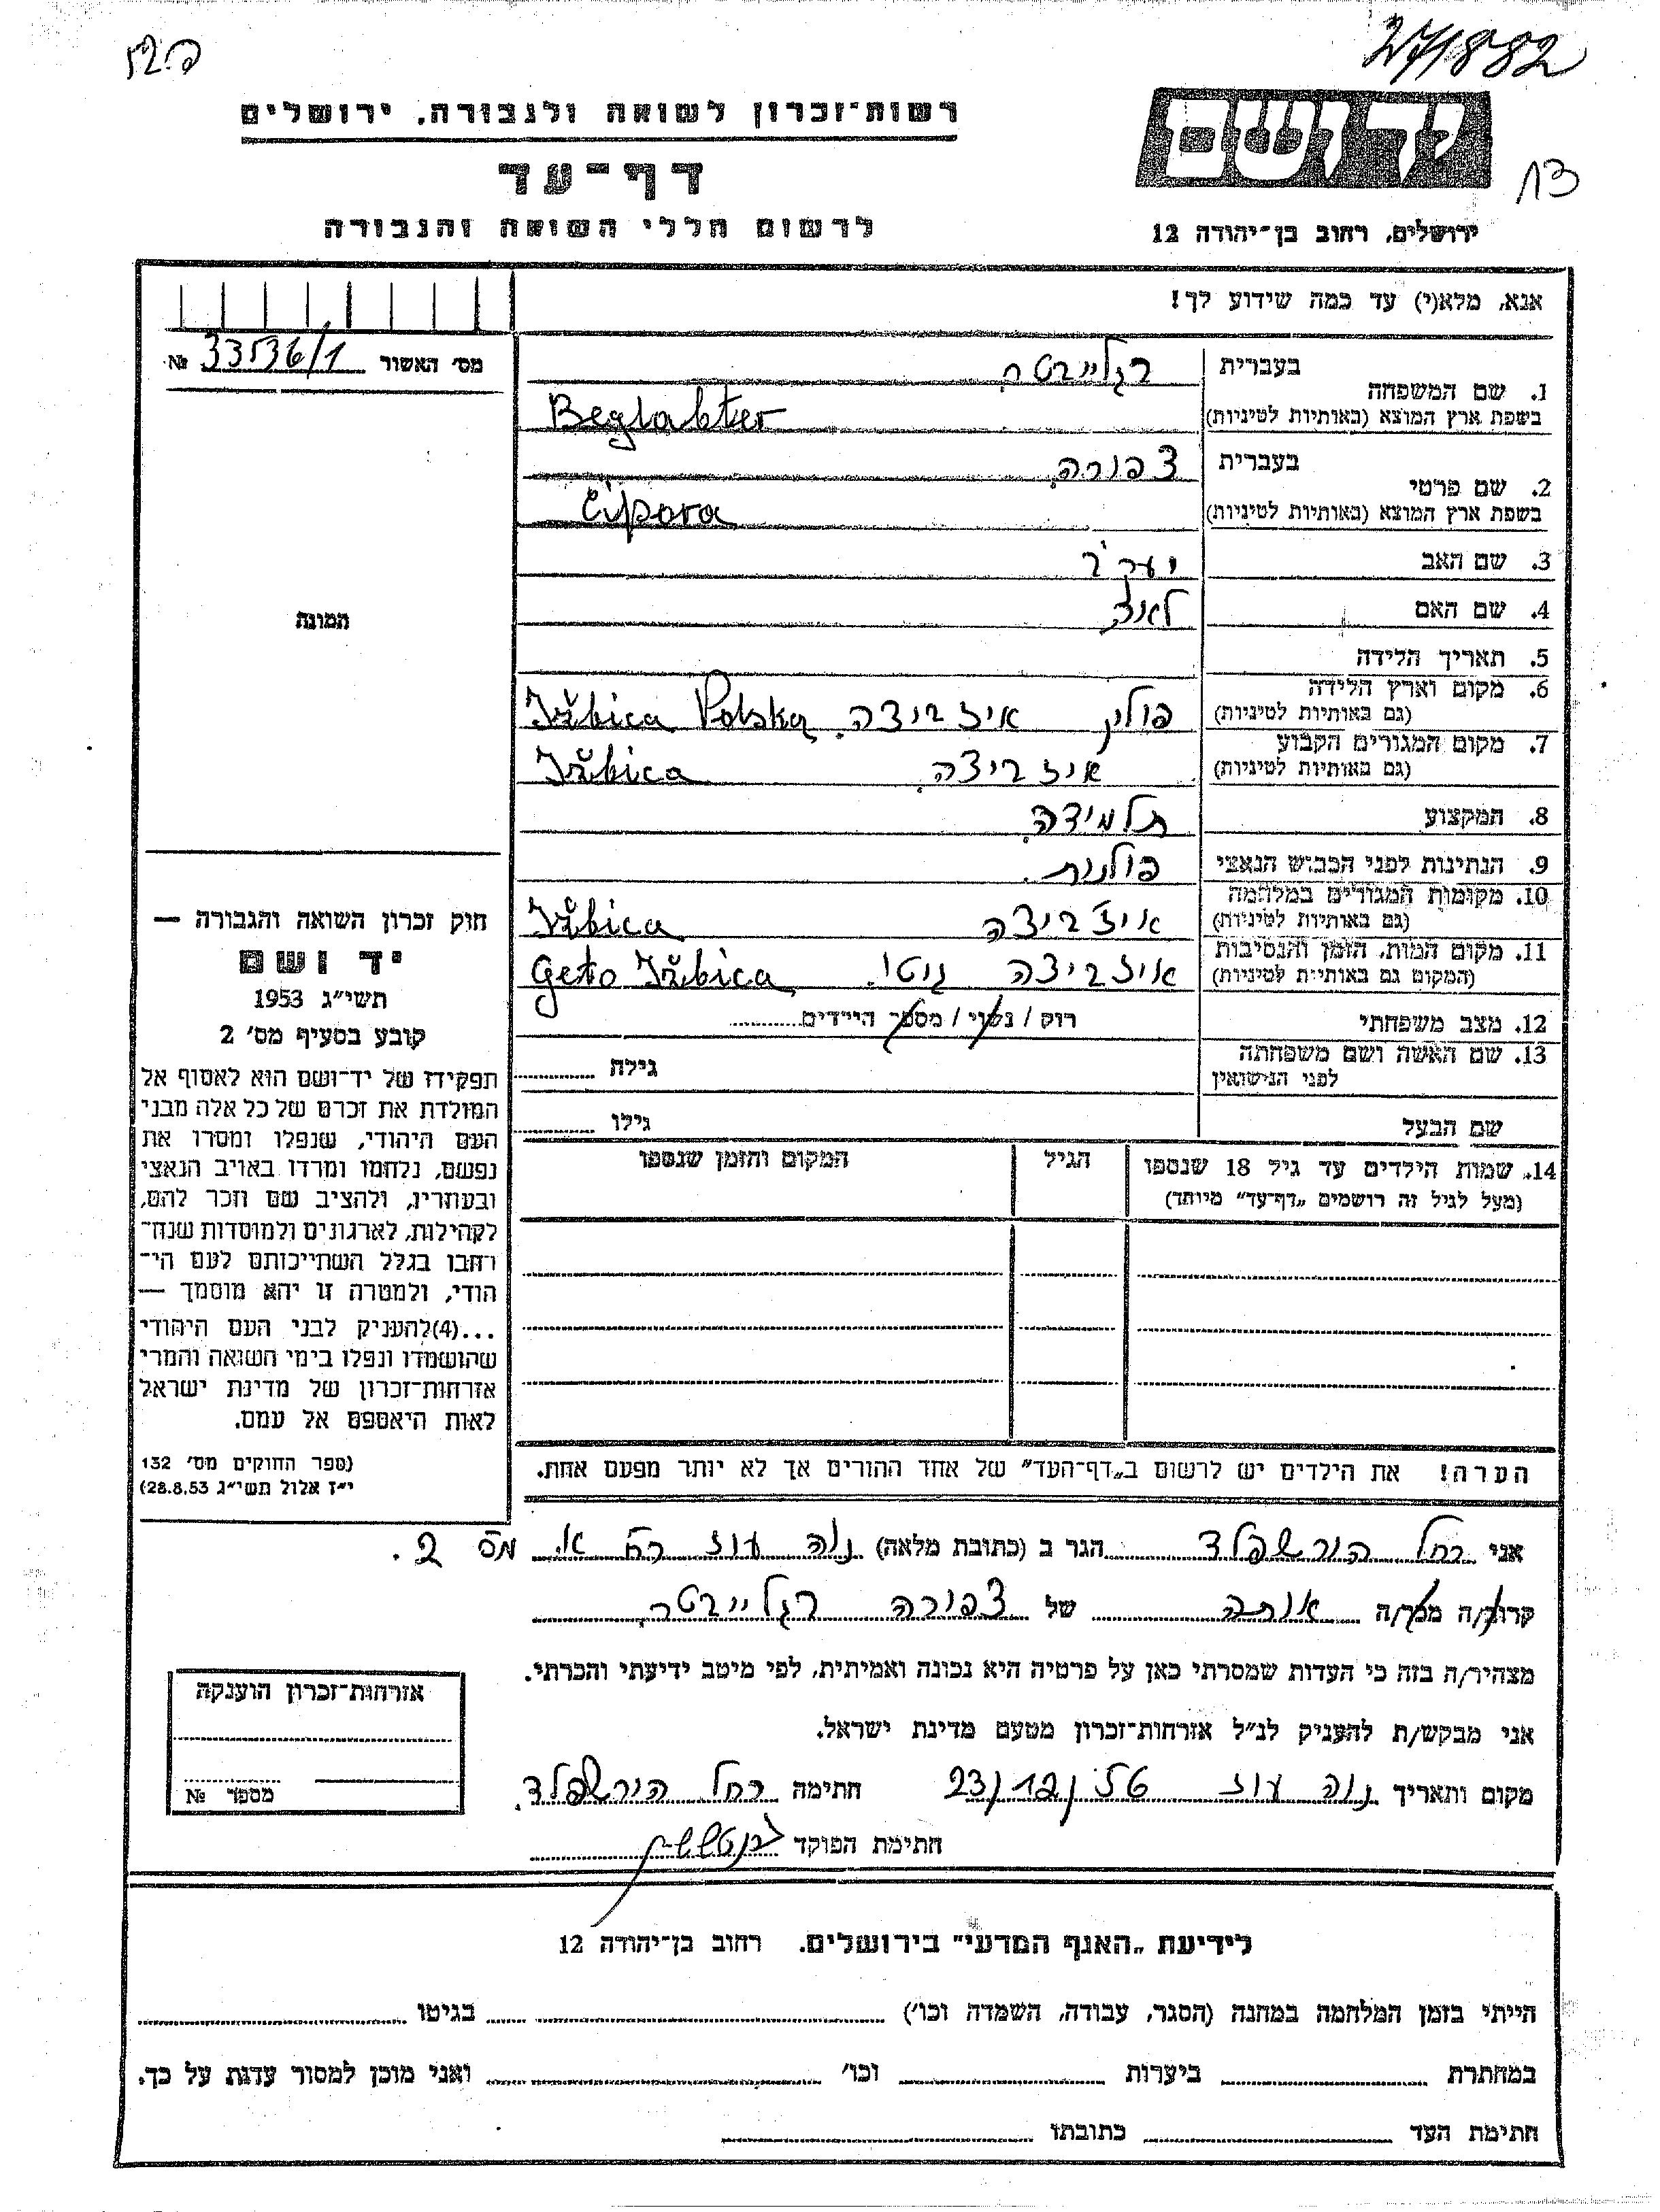 27/882
ב.צו
רשות־זכרון לשואה ולגבורה, ירושלים
יד ושם
13
דף־עד
לרשום חללי השואה והגבורה
ירושלים, רחוב בן־יהודה 12
אנא, מלא(י) עד כמה שידוע לך!
מס׳ האשור 33536/1 №
1. שם המשפחה
בעברית בגלייבטר
בשפת ארץ המוצא (באותיות לטיניות) Beglabter
2. שם פרטי
בעברית צפורה
בשפת ארץ המוצא (באותיות לטיניות) Cipora
3. שם האב
4. שם האם
5. תאריך הלידה
6. מקום וארץ הלידה
(גם באותיות לטיניות) פולין איזביצה Ižbica Polska
7. מקום המגורים הקבוע
(גם באותיות לטיניות) איזביצה Ižbica
8. המקצוע תלמידה
9. הנתינות לפני הכבוש הנאצי פולנית
10. מקומות המגורים במלחמה
(גם באותיות לטיניות) איזביצה Ižbica
11. מקום המות, הזמן והנסיבות
(המקום גם באותיות לטיניות) איזביצה גיטו. Geto Ižbica
12. מצב משפחתי רוק / נשוי / מספר הילדים
13. שם האשה ושם משפחתה
לפני הנישואין גילה
שם הבעל גילו
14. שמות הילדים עד גיל 18 שנספו
(מעל לגיל זה רושמים „דף־עד" מיוחד)
הגיל
המקום והזמן שנספו
הערה! את הילדים יש לרשום ב„דף־העד" של אחד ההורים אך לא יותר מפעם אחת.
תמונה
חוק זכרון השואה והגבורה —
יד ושם
תשי״ג 1953
קובע בסעיף מס׳ 2
תפקידו של יד־ושם הוא לאסוף אל
המולדת את זכרם של כל אלה מבני
העם היהודי, שנפלו ומסרו את
נפשם, נלחמו ומרדו באויב הנאצי
ובעוזריו, ולהציב שם וזכר להם,
לקהילות, לארגונים ולמוסדות שנח־
רבו בגלל השתייכותם לעם הי־
הודי, ולמטרה זו יהא מוסמך —
...(4)להעניק לבני העם היהודי
שהושמדו ונפלו בימי השואה והמרי
אזרחות־זכרון של מדינת ישראל
לאות היאספם אל עמם.
(ספר החוקים מס׳ 132
י״ז אלול תשי״ג 28.8.53)
אני רחל הירשפלד הגר ב (כתובת מלאה) נוה עוז רח א. מס 2.
קרוב/ה מכר/ה אותה של צפורה בגלייבטר
מצהיר/ה בזה כי העדות שמסרתי כאן על פרטיה היא נכונה ואמיתית, לפי מיטב ידיעתי והכרתי.
אני מבקש/ת להעניק לנ״ל אזרחות־זכרון מטעם מדינת ישראל.
מקום ותאריך נוה עוז 23/12/56 חתימה רחל הירשפלד
חתימת הפוקד
אזרחות־זכרון הוענקה
מספר №
לידיעת „האגף המדעי" בירושלים. רחוב בן־יהודה 12
הייתי בזמן המלחמה במחנה (הסגר, עבודה, השמדה וכו׳) בגיטו
במחתרת ביערות וכו׳ ואני מוכן למסור עדות על כך.
חתימת העד כתובתו